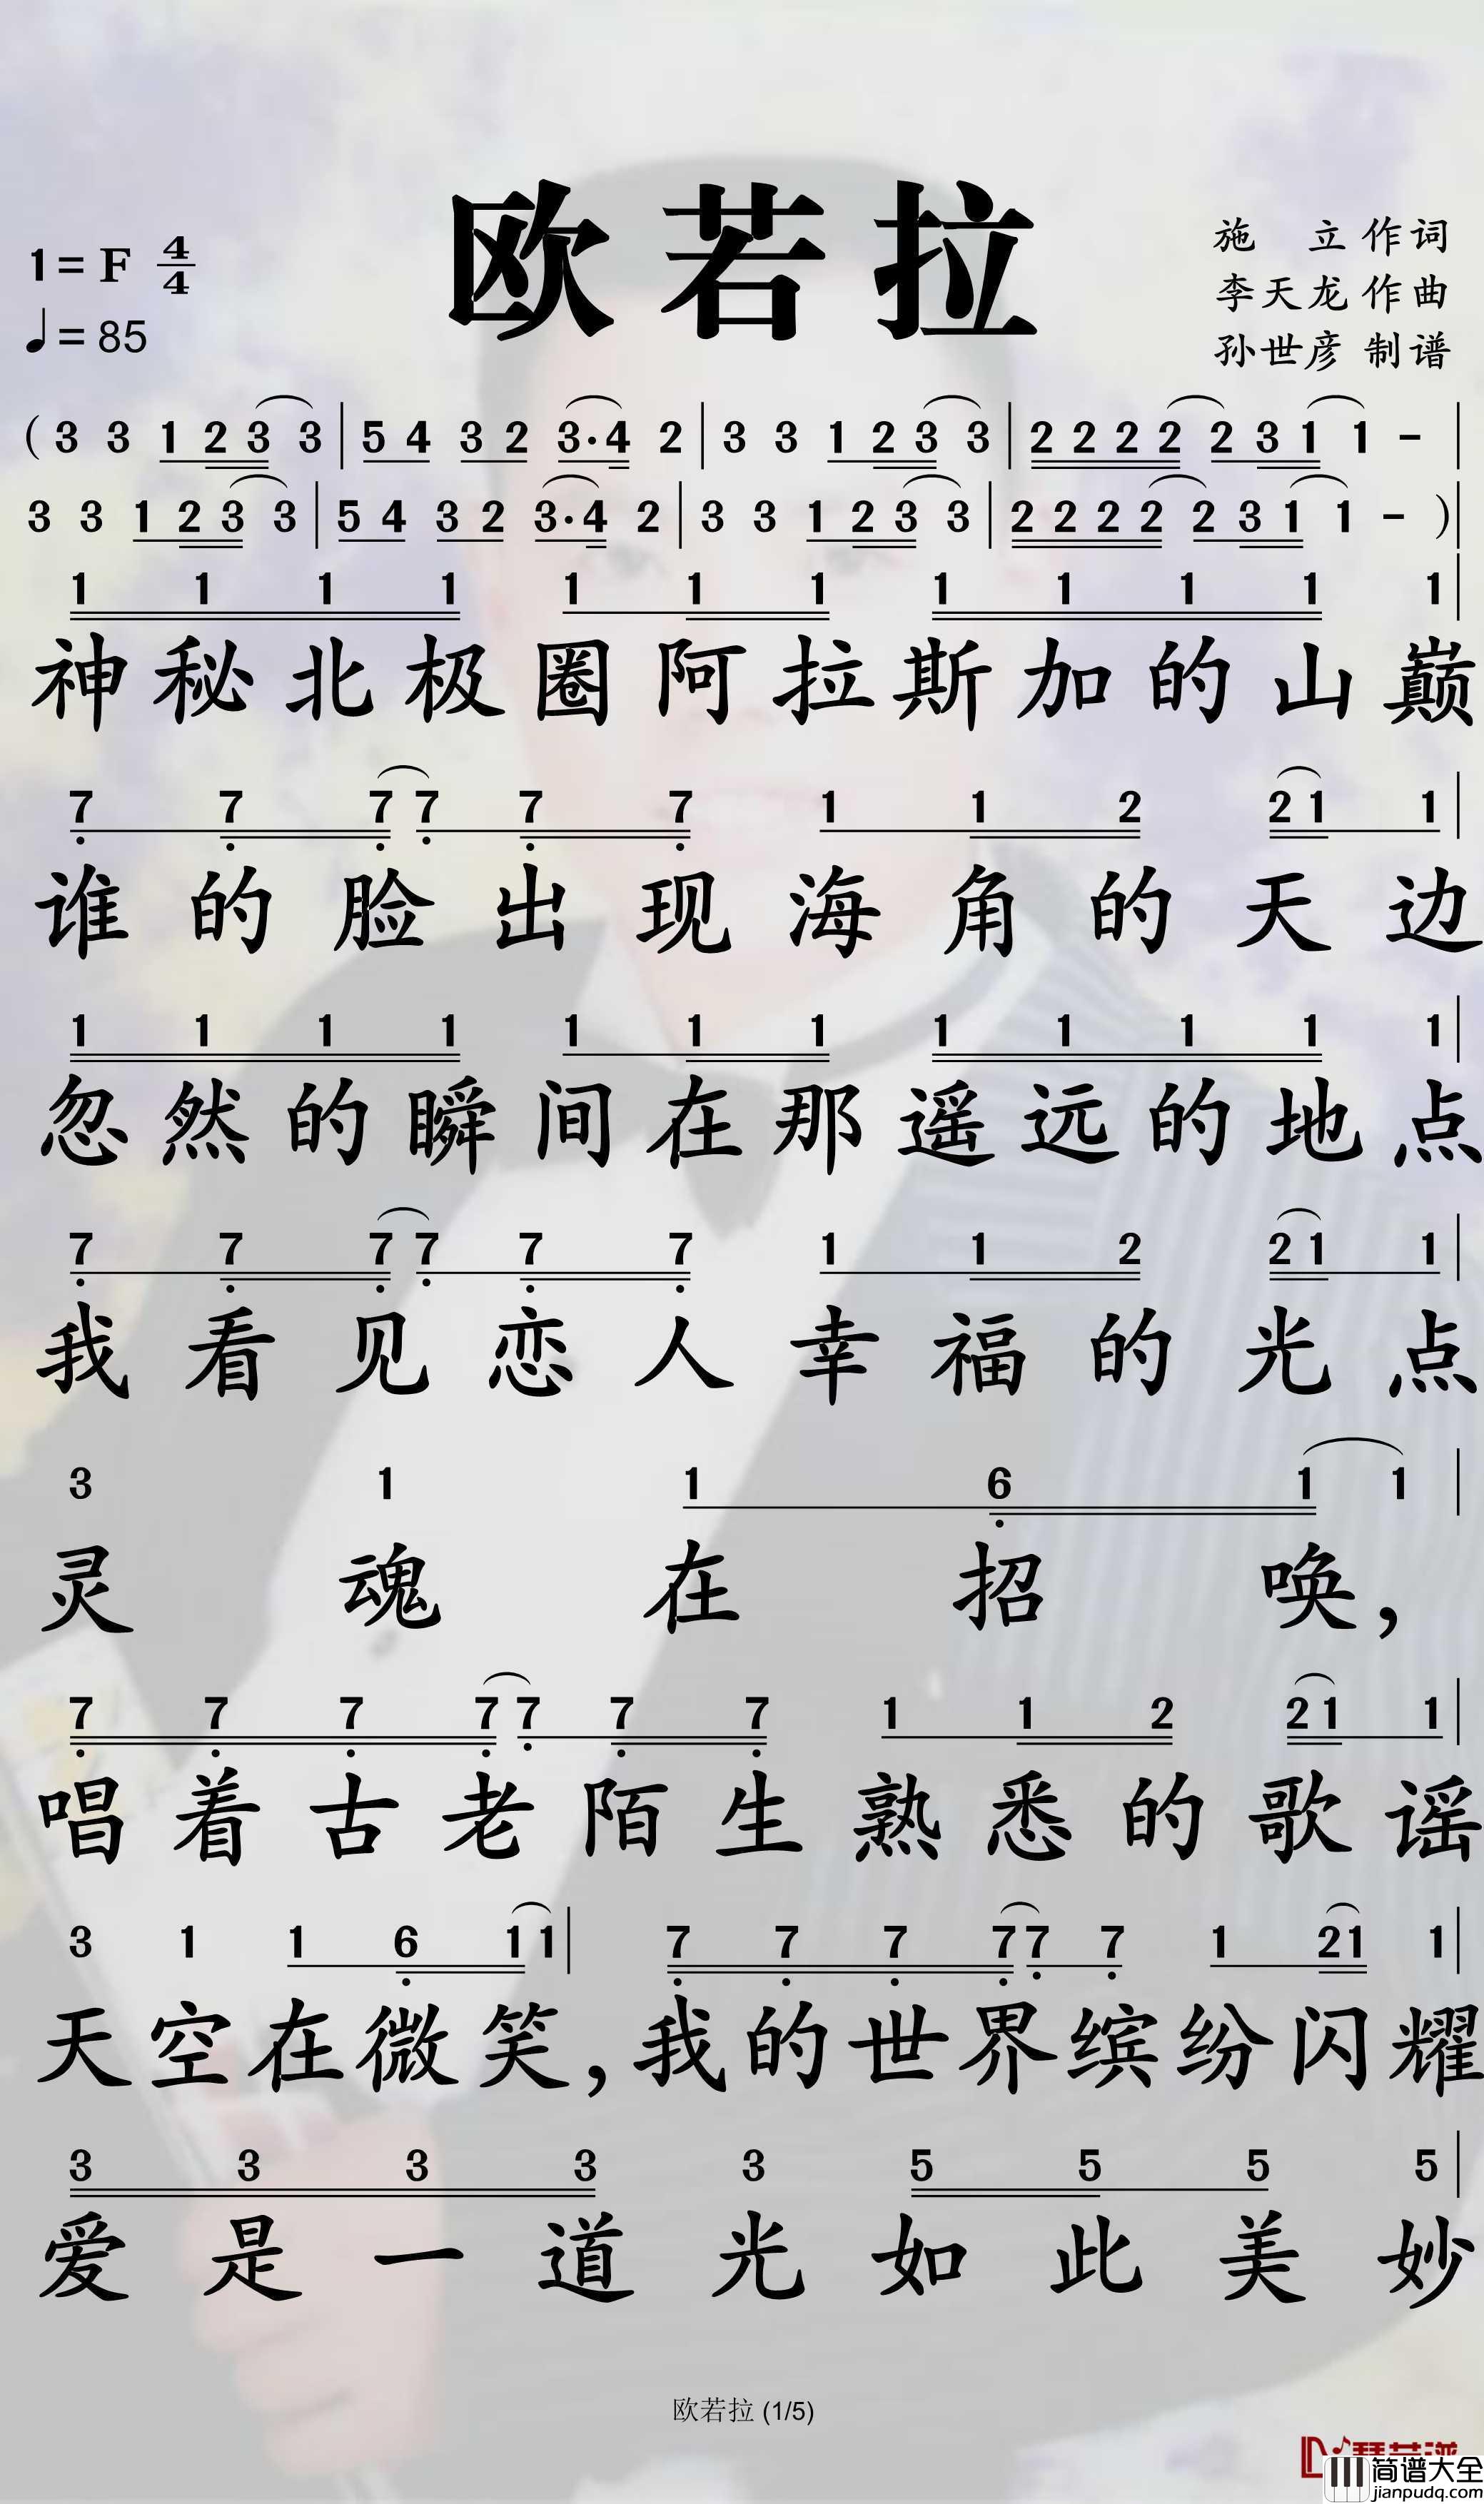 欧若拉
1=F 4/4
施 立 作词
李天龙 作曲
♩=85
孙世彦 制谱
( 3 3 1 2 3 3 | 5 4 3 2 3·4 2 | 3 3 1 2 3 3 | 2 2 2 2 2 3 1 1 - |
3 3 1 2 3 3 | 5 4 3 2 3·4 2 | 3 3 1 2 3 3 | 2 2 2 2 2 3 1 1 - ) |
1 1 1 1 1 1 1 1 1 1 1 1 |
神秘北极圈阿拉斯加的山巅
7 7 7 7 7 7 1 1 2 2 1 1 |
谁的脸出现海角的天边
1 1 1 1 1 1 1 1 1 1 1 1 |
忽然的瞬间在那遥远的地点
7 7 7 7 7 7 1 1 2 2 1 1 |
我看见恋人幸福的光点
3 1 1 6 1 1 |
灵魂在招唤，
7 7 7 7 7 7 7 1 1 2 2 1 1 |
唱着古老陌生熟悉的歌谣
3 1 1 6 1 1 | 7 7 7 7 7 7 1 2 1 1 |
天空在微笑，我的世界缤纷闪耀
3 3 3 3 3 5 5 5 5 |
爱是一道光如此美妙
欧若拉 (1/5)
简谱大全
jianpudq.com